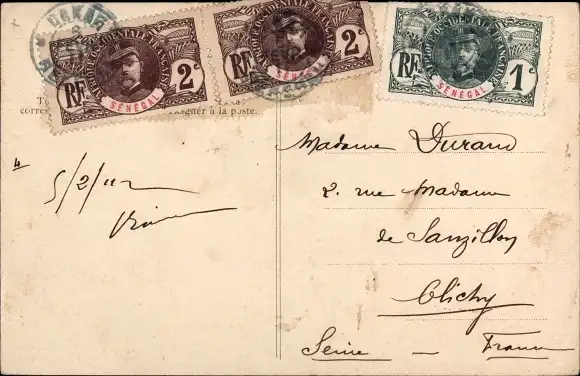 DAKAR
AFRIQUE OCCIDENTALE FRANÇAISE
RF 2c
SÉNÉGAL
AFRIQUE OCCIDENTALE FRANÇAISE
RF 2c
SÉNÉGAL
AFRIQUE OCCIDENTALE FRANÇAISE
RF 1c
SÉNÉGAL
corres
à la poste.
4
5/2/12
Madame Durand
2. rue Madame
de Sanzillon
Clichy
Seine - France